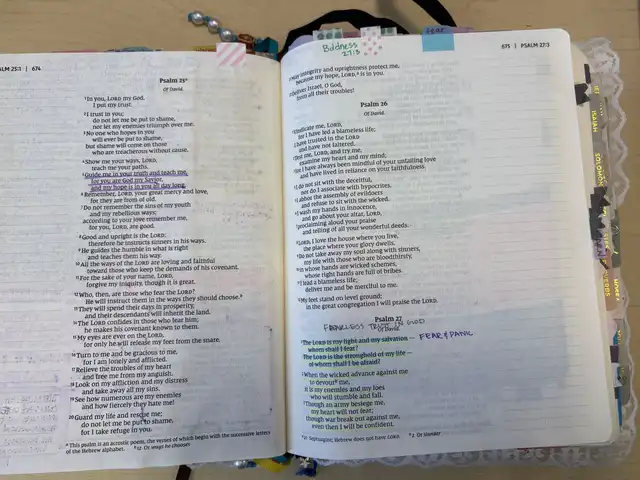 PSALM 25:1 | 674
Psalm 25ᵃ
Of David.
¹ In you, LORD my God,
I put my trust.
² I trust in you;
do not let me be put to shame,
nor let my enemies triumph over me.
³ No one who hopes in you
will ever be put to shame,
but shame will come on those
who are treacherous without cause.
⁴ Show me your ways, LORD,
teach me your paths.
⁵ Guide me in your truth and teach me,
for you are God my Savior,
and my hope is in you all day long.
⁶ Remember, LORD, your great mercy and love,
for they are from of old.
⁷ Do not remember the sins of my youth
and my rebellious ways;
according to your love remember me,
for you, LORD, are good.
⁸ Good and upright is the LORD;
therefore he instructs sinners in his ways.
⁹ He guides the humble in what is right
and teaches them his way.
¹⁰ All the ways of the LORD are loving and faithful
toward those who keep the demands of his covenant.
¹¹ For the sake of your name, LORD,
forgive my iniquity, though it is great.
¹² Who, then, are those who fear the LORD?
He will instruct them in the ways they should choose.ᵇ
¹³ They will spend their days in prosperity,
and their descendants will inherit the land.
¹⁴ The LORD confides in those who fear him;
he makes his covenant known to them.
¹⁵ My eyes are ever on the LORD,
for only he will release my feet from the snare.
¹⁶ Turn to me and be gracious to me,
for I am lonely and afflicted.
¹⁷ Relieve the troubles of my heart
and free me from my anguish.
¹⁸ Look on my affliction and my distress
and take away all my sins.
¹⁹ See how numerous are my enemies
and how fiercely they hate me!
²⁰ Guard my life and rescue me;
do not let me be put to shame,
for I take refuge in you.
ᵃ This psalm is an acrostic poem, the verses of which begin with the successive letters
of the Hebrew alphabet. ᵇ 12 Or ways he chooses
Boldness
27:3
Fear
675 | PSALM 27:3
²¹ May integrity and uprightness protect me,
because my hope, LORD,ᵃ is in you.
²² Deliver Israel, O God,
from all their troubles!
Psalm 26
Of David.
¹ Vindicate me, LORD,
for I have led a blameless life;
I have trusted in the LORD
and have not faltered.
² Test me, LORD, and try me,
examine my heart and my mind;
³ for I have always been mindful of your unfailing love
and have lived in reliance on your faithfulness.
⁴ I do not sit with the deceitful,
nor do I associate with hypocrites.
⁵ I abhor the assembly of evildoers
and refuse to sit with the wicked.
⁶ I wash my hands in innocence,
and go about your altar, LORD,
⁷ proclaiming aloud your praise
and telling of all your wonderful deeds.
⁸ LORD, I love the house where you live,
the place where your glory dwells.
⁹ Do not take away my soul along with sinners,
my life with those who are bloodthirsty,
¹⁰ in whose hands are wicked schemes,
whose right hands are full of bribes.
¹¹ I lead a blameless life;
deliver me and be merciful to me.
¹² My feet stand on level ground;
in the great congregation I will praise the LORD.
Psalm 27
FEARLESS TRUST IN GOD
Of David.
¹ The LORD is my light and my salvation — FEAR & PANIC
whom shall I fear?
The LORD is the stronghold of my life —
of whom shall I be afraid?
² When the wicked advance against me
to devourᵇ me,
it is my enemies and my foes
who will stumble and fall.
³ Though an army besiege me,
my heart will not fear;
though war break out against me,
even then I will be confident.
ᵃ 21 Septuagint; Hebrew does not have LORD. ᵇ 2 Or slander
ISAIAH
SOLOMON